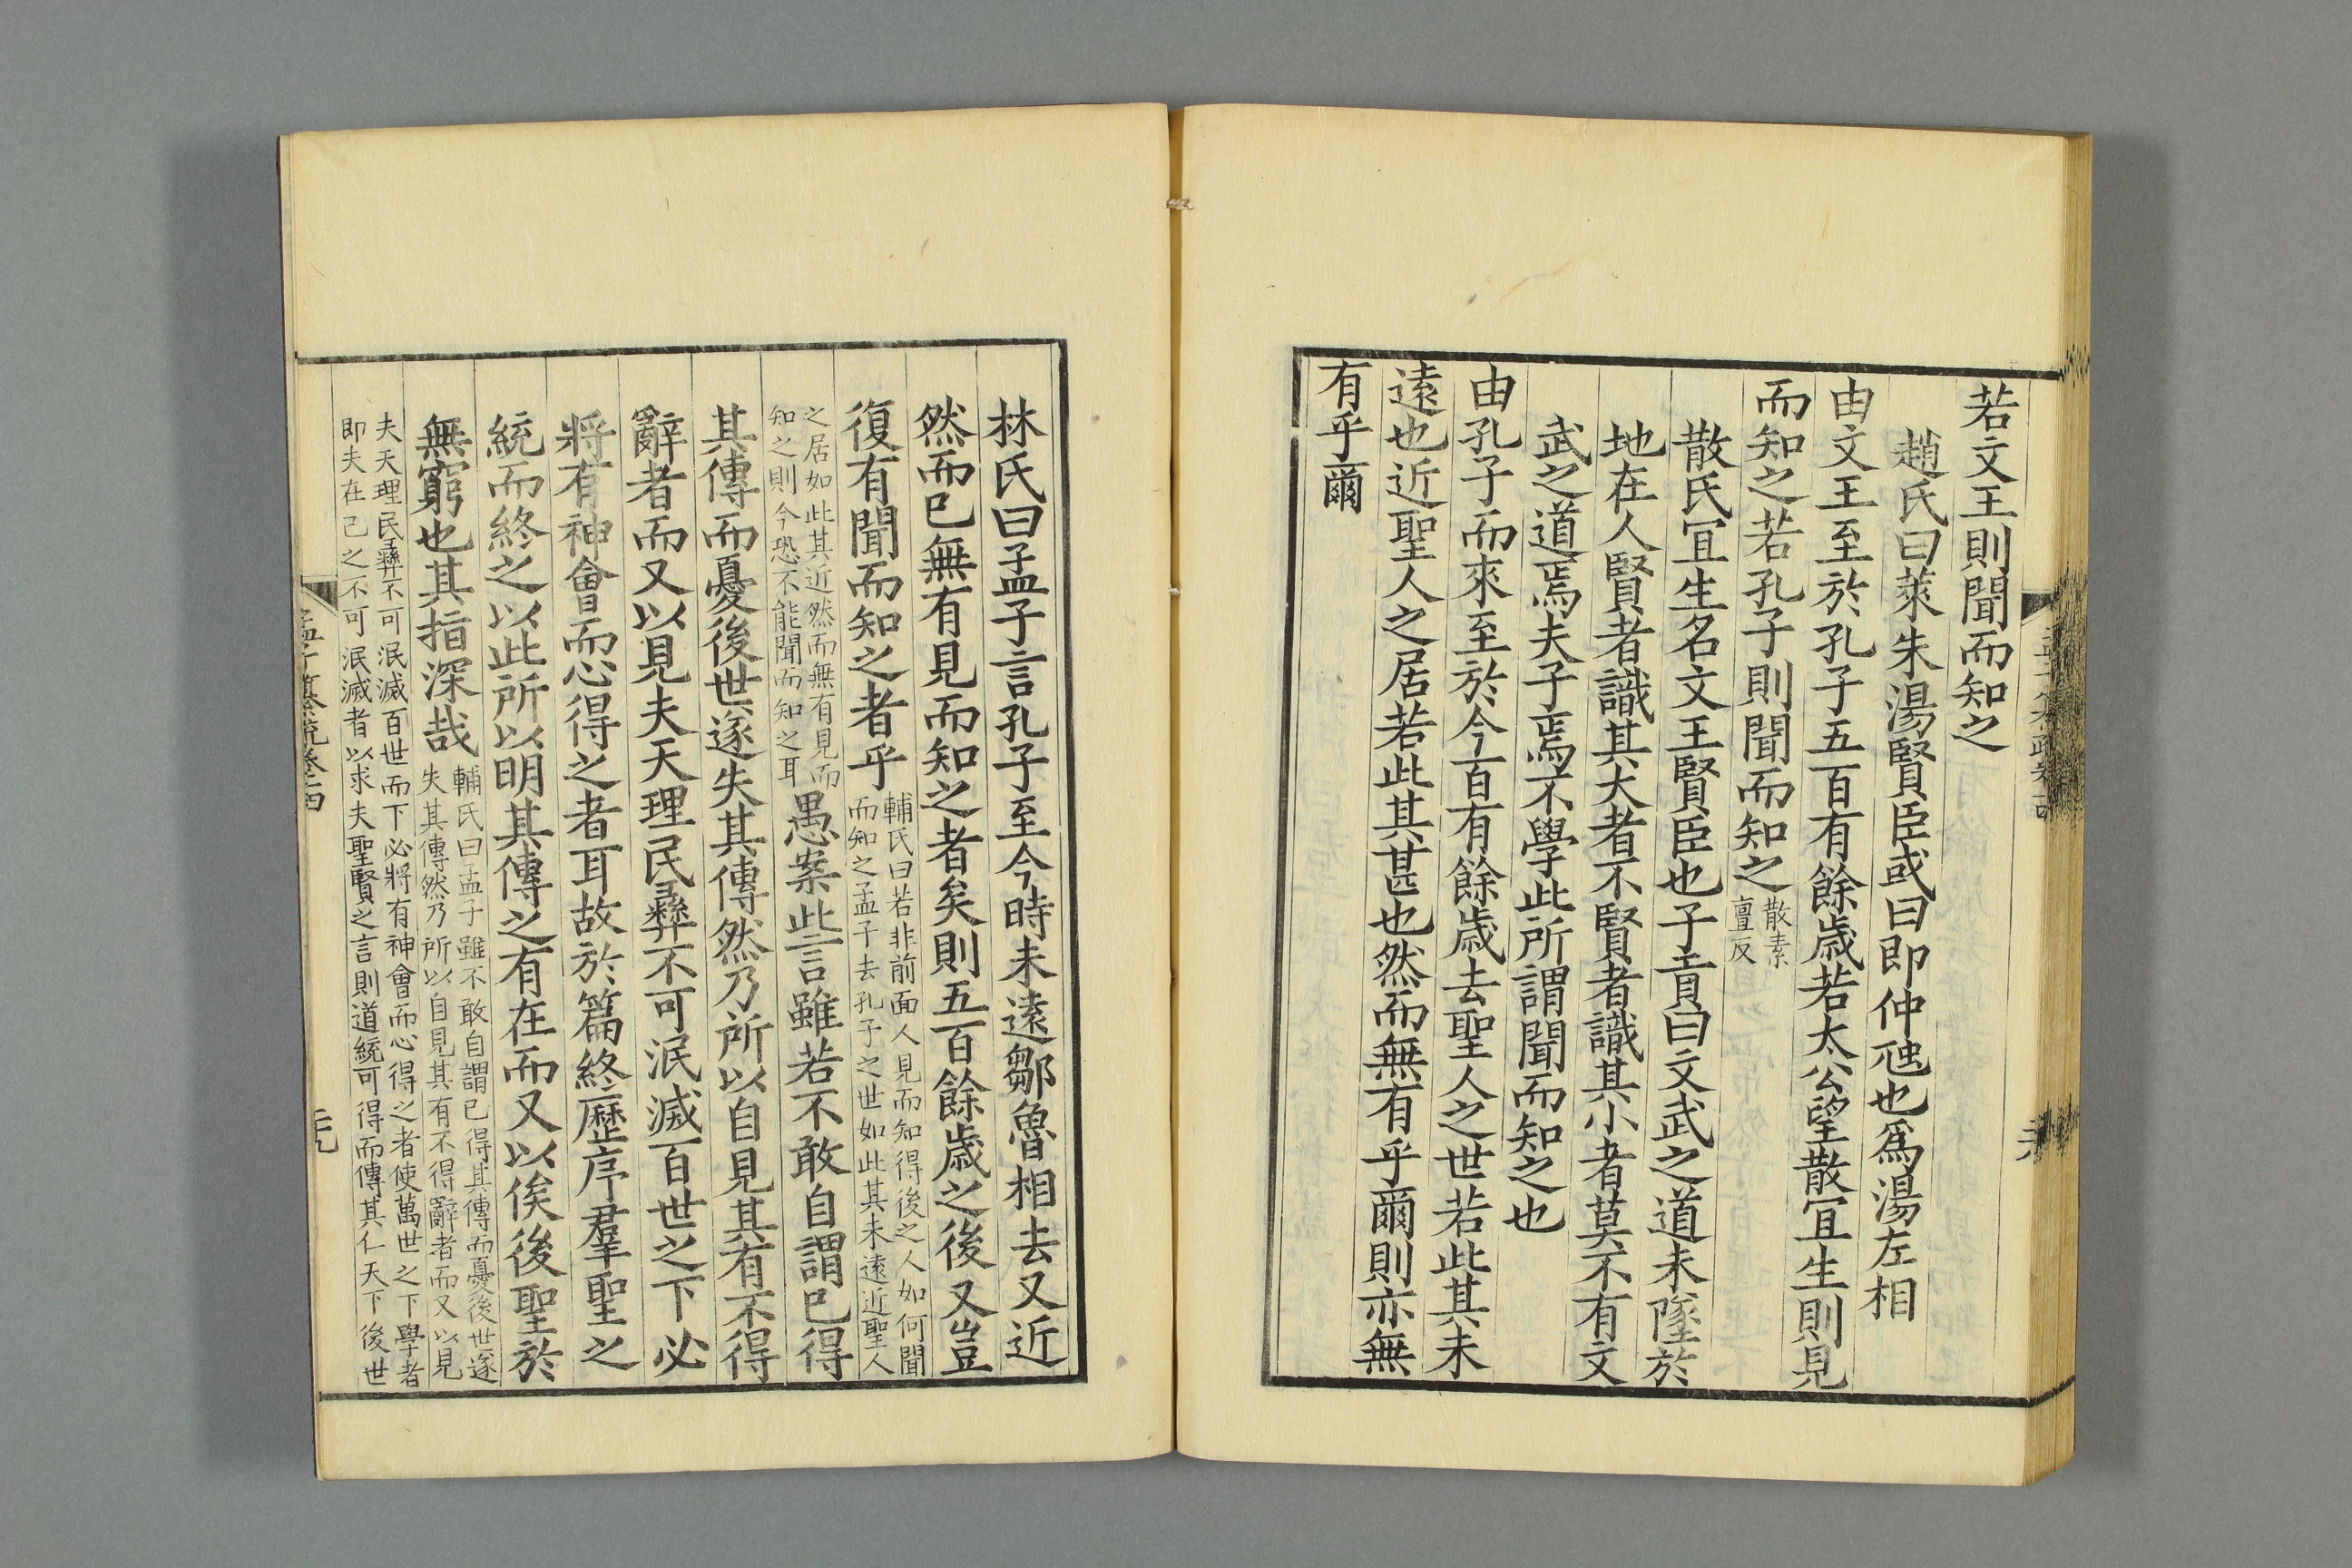 若文王則聞而知之
趙氏曰萊朱湯賢臣或曰即仲虺也爲湯左相
由文王至於孔子五百有餘歲若太公望散宜生則見
而知之若孔子則聞而知之散素
亶反
散氏宜生名文王賢臣也子貢曰文武之道未墜於
地在人賢者識其大者不賢者識其小者莫不有文
武之道焉夫子焉不學此所謂聞而知之也
由孔子而來至於今百有餘歲去聖人之世若此其未
遠也近聖人之居若此其甚也然而無有乎爾則亦無
有乎爾
林氏曰孟子言孔子至今時未遠鄒魯相去又近
然而已無有見而知之者矣則五百餘歲之後又豈
復有聞而知之者乎輔氏曰若非前面人見而知得後之人如何聞
而知之孟子去孔子之世如此其未遠近聖人
之居如此其近然而無有見而
知之則今恐不能聞而知之耳愚案此言雖若不敢自謂已得
其傳而憂後世遂失其傳然乃所以自見其有不得
辭者而又以見夫天理民彝不可泯滅百世之下必
將有神會而心得之者耳故於篇終歷序羣聖之
統而終之以此所以明其傳之有在而又以俟後聖於
無窮也其指深哉輔氏曰孟子雖不敢自謂已得其傳而憂後世遂
失其傳然乃所以自見其有不得辭者而又以見
夫天理民彝不可泯滅百世而下必將有神會而心得之者使萬世之下學者
即夫在己之不可泯滅者以求夫聖賢之言則道統可得而傳其仁天下後世
孟子纂䟽卷十四